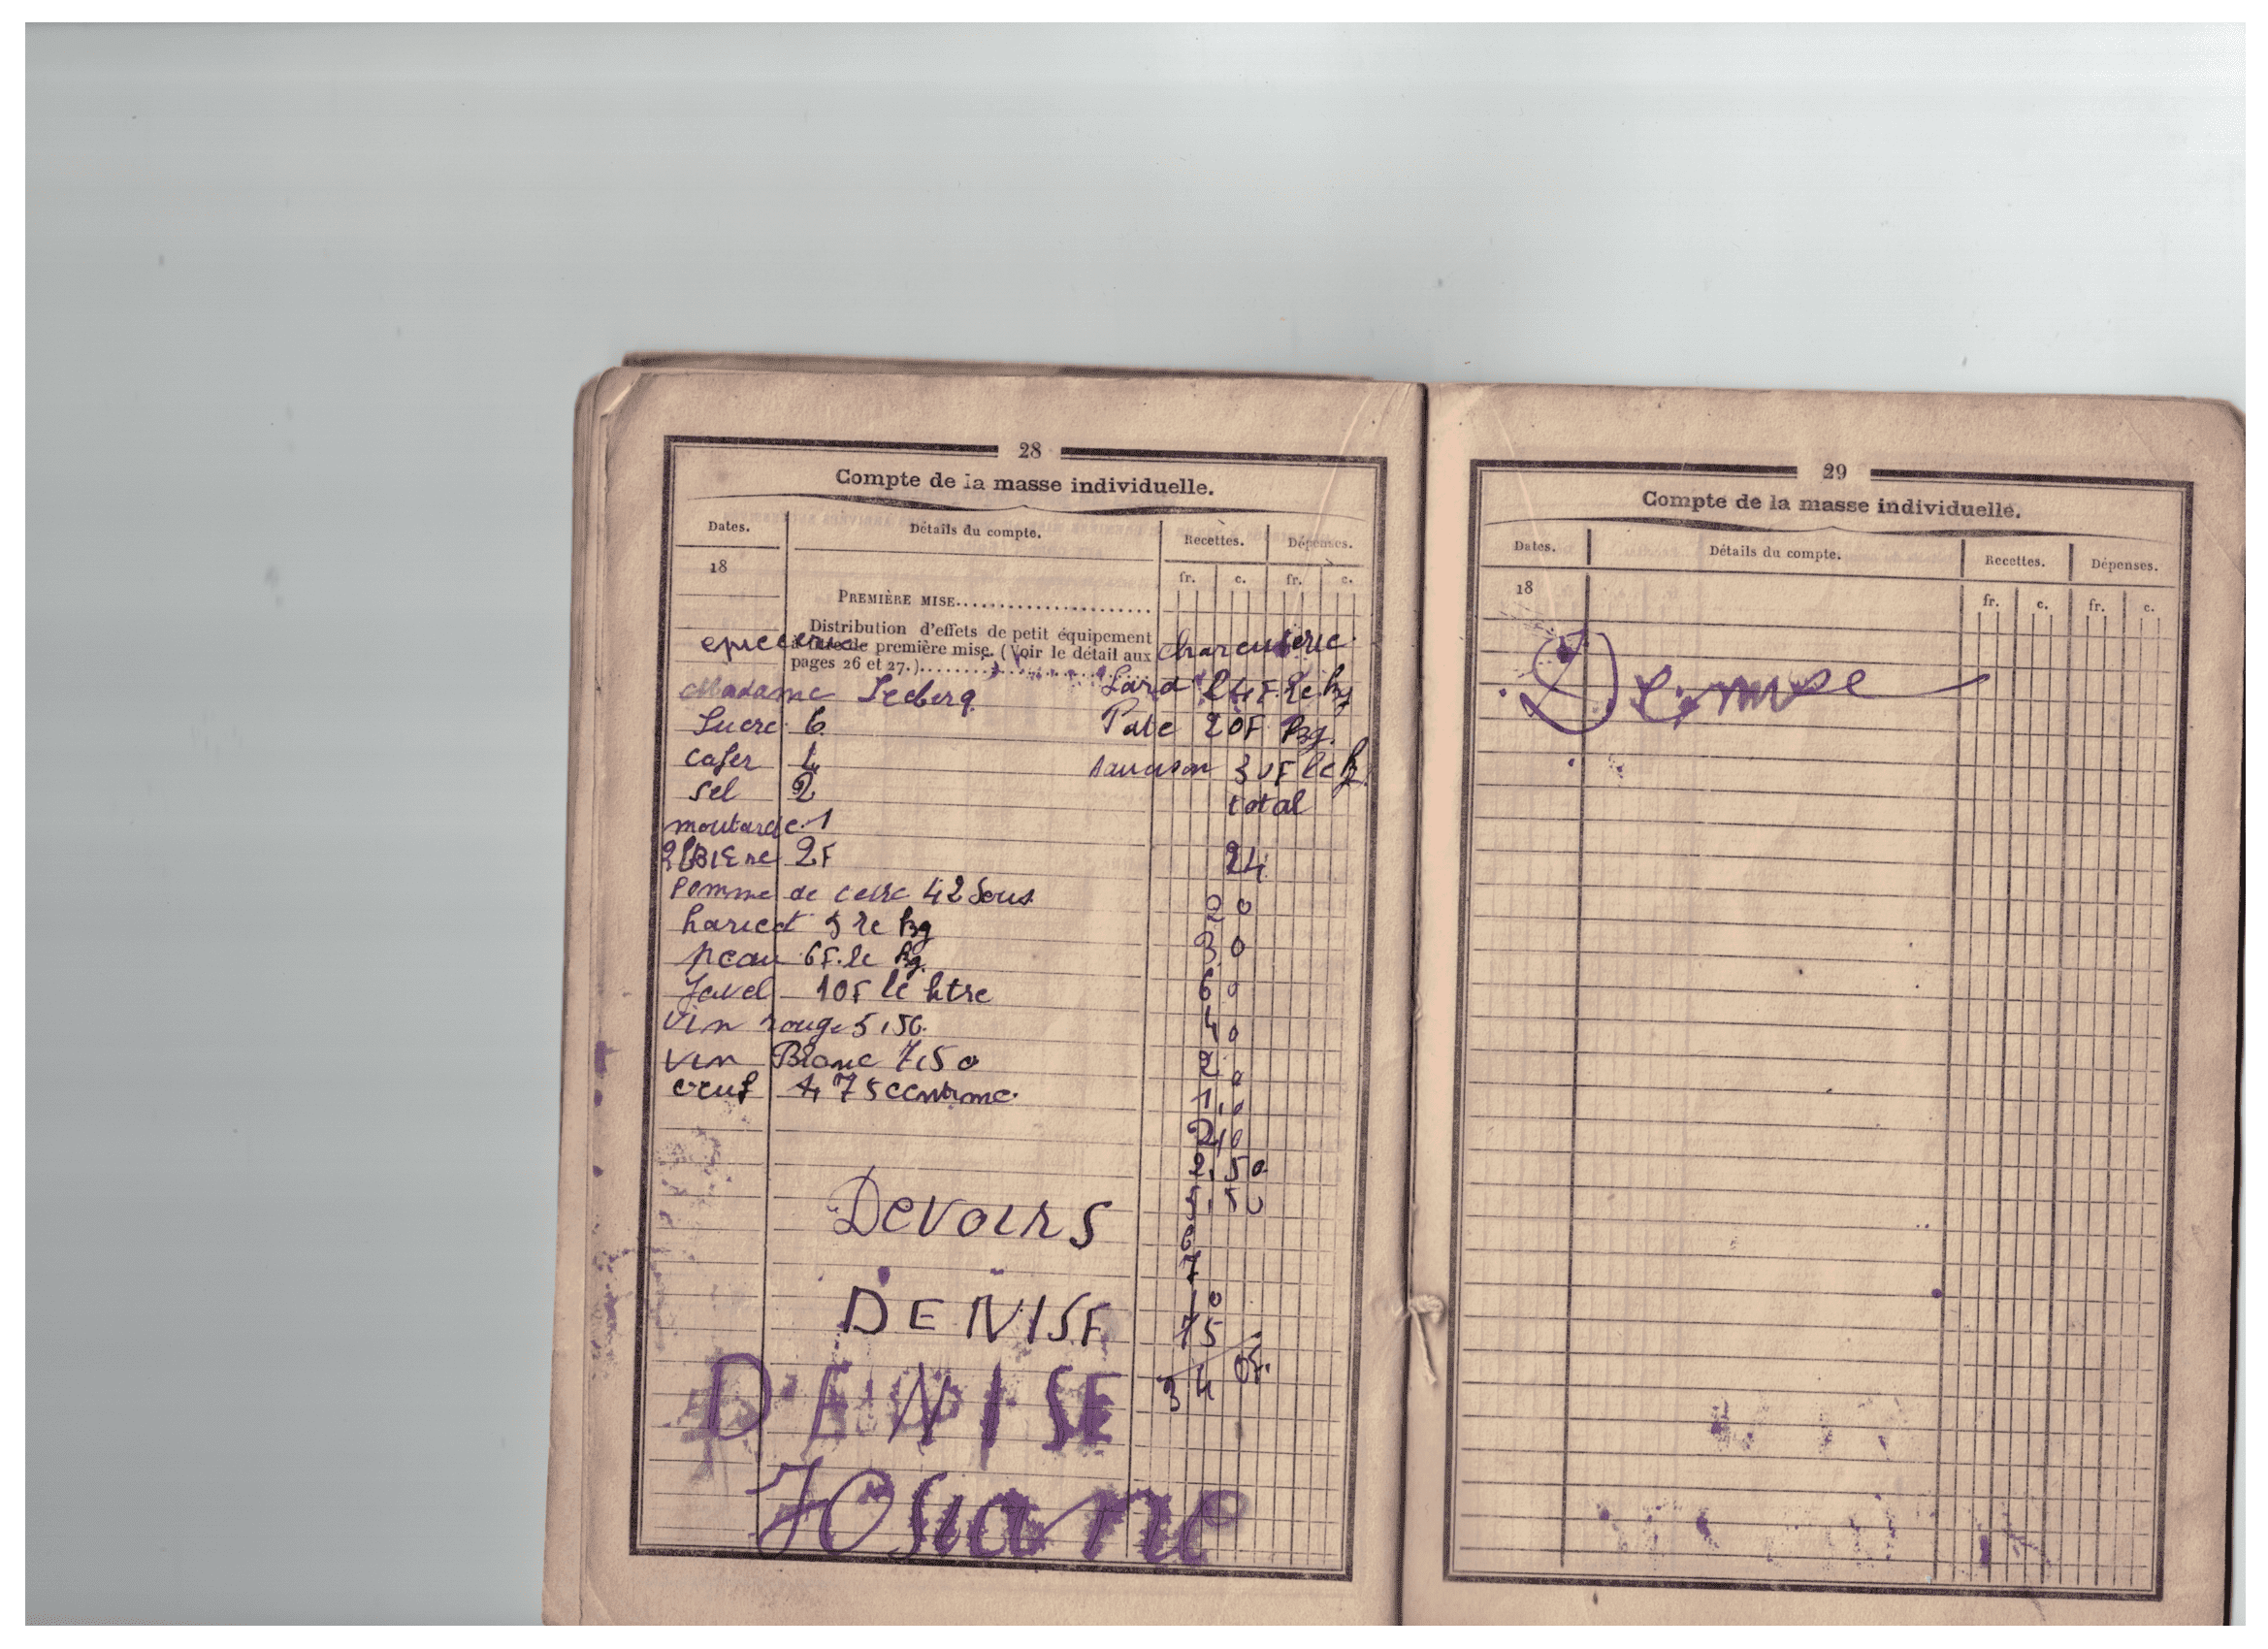 28
Compte de la masse individuelle.
Dates. Détails du compte. Recettes. Dépenses.
18 fr. c. fr. c.
PREMIÈRE MISE
Distribution d'effets de petit équipement
à titre de première mise. (Voir le détail aux
pages 26 et 27.)
epicerie
Madame
Sucre 6
cafer 4
sel 2
moutarde 1
2F
Pomme de terre 42 Sous
haricot 5 le kg
6F. le kg
Javel 10F le litre
vin rouge 5,50
vin Blanc 7,50
oeuf 4 75 centime.
charcuterie
Lard 24F. le kg
Pate 20F kg.
saucison 30F le kg
total
24
20
30
60
40
20
1,0
2,0
2,50
5,50
6
7
10
75
34 05.
Devoirs
DENISE
DENISE
Josiane
29
Compte de la masse individuelle.
Dates. Détails du compte. Recettes. Dépenses.
18 fr. c. fr. c.
Denise